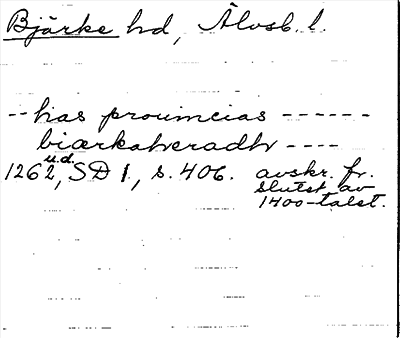 Bjärke hd, Älvsb. l.
-- has prouincias ------
biærkahæradh ----
u.d.
1262, SD 1, s. 406. avskr. fr.
slutet av
1400-talet.